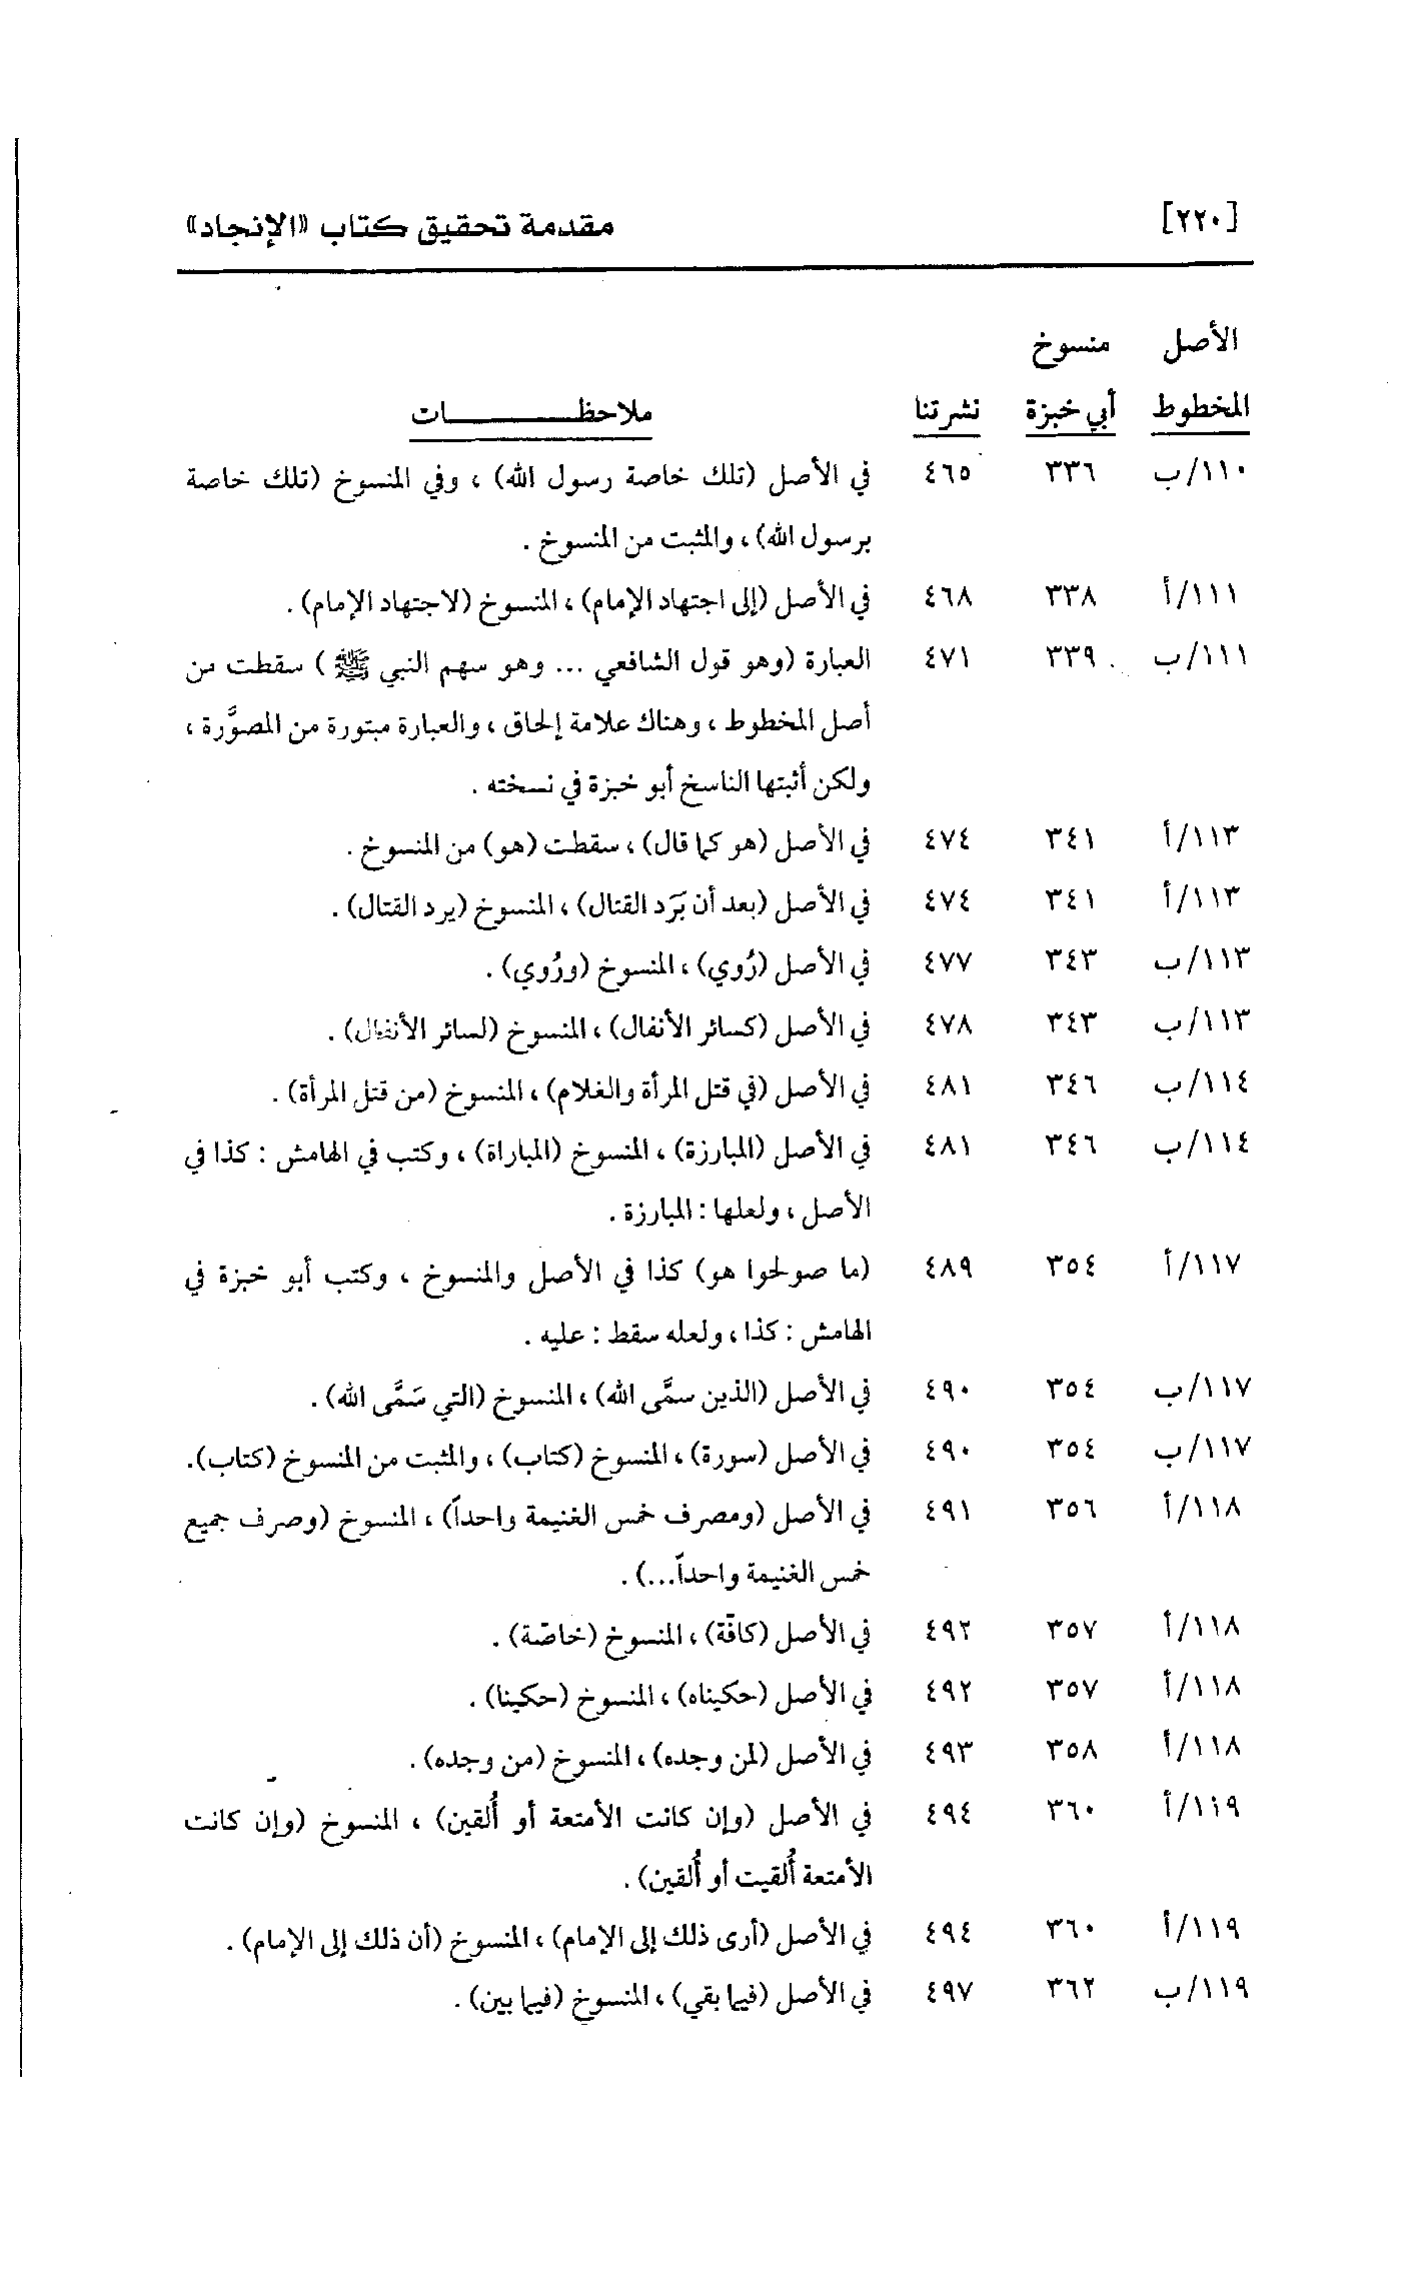 [٢٢٠] مقدمة تحقيق كتاب «الإنجاد»
الأصل منسوخ
المخطوط أبي خبزة نشرتنا ملاحظـــــــــات
١١٠/ب ٣٣٦ ٤٦٥ في الأصل (تلك خاصة رسول الله) ، وفي المنسوخ (تلك خاصة
برسول الله) ، والمثبت من المنسوخ .
١١١/أ ٣٣٨ ٤٦٨ في الأصل (إلى اجتهاد الإمام) ، المنسوخ (لاجتهاد الإمام) .
١١١/ب ٣٣٩ ٤٧١ العبارة (وهو قول الشافعي ... وهو سهم النبي ﷺ ) سقطت من
أصل المخطوط ، وهناك علامة إلحاق ، والعبارة مبتورة من المصوَّرة ،
ولكن أثبتها الناسخ أبو خبزة في نسخته .
١١٣/أ ٣٤١ ٤٧٤ في الأصل (هو كما قال) ، سقطت (هو) من المنسوخ .
١١٣/أ ٣٤١ ٤٧٤ في الأصل (بعد أن بَرَد القتال) ، المنسوخ (يرد القتال) .
١١٣/ب ٣٤٣ ٤٧٧ في الأصل (رُوي) ، المنسوخ (ورُوي) .
١١٣/ب ٣٤٣ ٤٧٨ في الأصل (كسائر الأنفال) ، المنسوخ (لسائر الأنفال) .
١١٤/ب ٣٤٦ ٤٨١ في الأصل (في قتل المرأة والغلام) ، المنسوخ (من قتل المرأة) .
١١٤/ب ٣٤٦ ٤٨١ في الأصل (المبارزة) ، المنسوخ (المباراة) ، وكتب في الهامش : كذا في
الأصل ، ولعلها : المبارزة .
١١٧/أ ٣٥٤ ٤٨٩ (ما صولحوا هو) كذا في الأصل والمنسوخ ، وكتب أبو خبزة في
الهامش : كذا ، ولعله سقط : عليه .
١١٧/ب ٣٥٤ ٤٩٠ في الأصل (الذين سمَّى الله) ، المنسوخ (التي سَمَّى الله) .
١١٧/ب ٣٥٤ ٤٩٠ في الأصل (سورة) ، المنسوخ (كتاب) ، والمثبت من المنسوخ (كتاب).
١١٨/أ ٣٥٦ ٤٩١ في الأصل (ومصرف خمس الغنيمة واحداً) ، المنسوخ (وصرف جميع
خمس الغنيمة واحداً...) .
١١٨/أ ٣٥٧ ٤٩٢ في الأصل (كافّة) ، المنسوخ (خاصّة) .
١١٨/أ ٣٥٧ ٤٩٢ في الأصل (حكيناه) ، المنسوخ (حكينا) .
١١٨/أ ٣٥٨ ٤٩٣ في الأصل (لمن وجده) ، المنسوخ (من وجده) .
١١٩/أ ٣٦٠ ٤٩٤ في الأصل (وإن كانت الأمتعة أو أُلقين) ، المنسوخ (وإن كانت
الأمتعة أُلقيت أو أُلقين) .
١١٩/أ ٣٦٠ ٤٩٤ في الأصل (أرى ذلك إلى الإمام) ، المنسوخ (أن ذلك إلى الإمام) .
١١٩/ب ٣٦٢ ٤٩٧ في الأصل (فيما بقي) ، المنسوخ (فيما بين) .